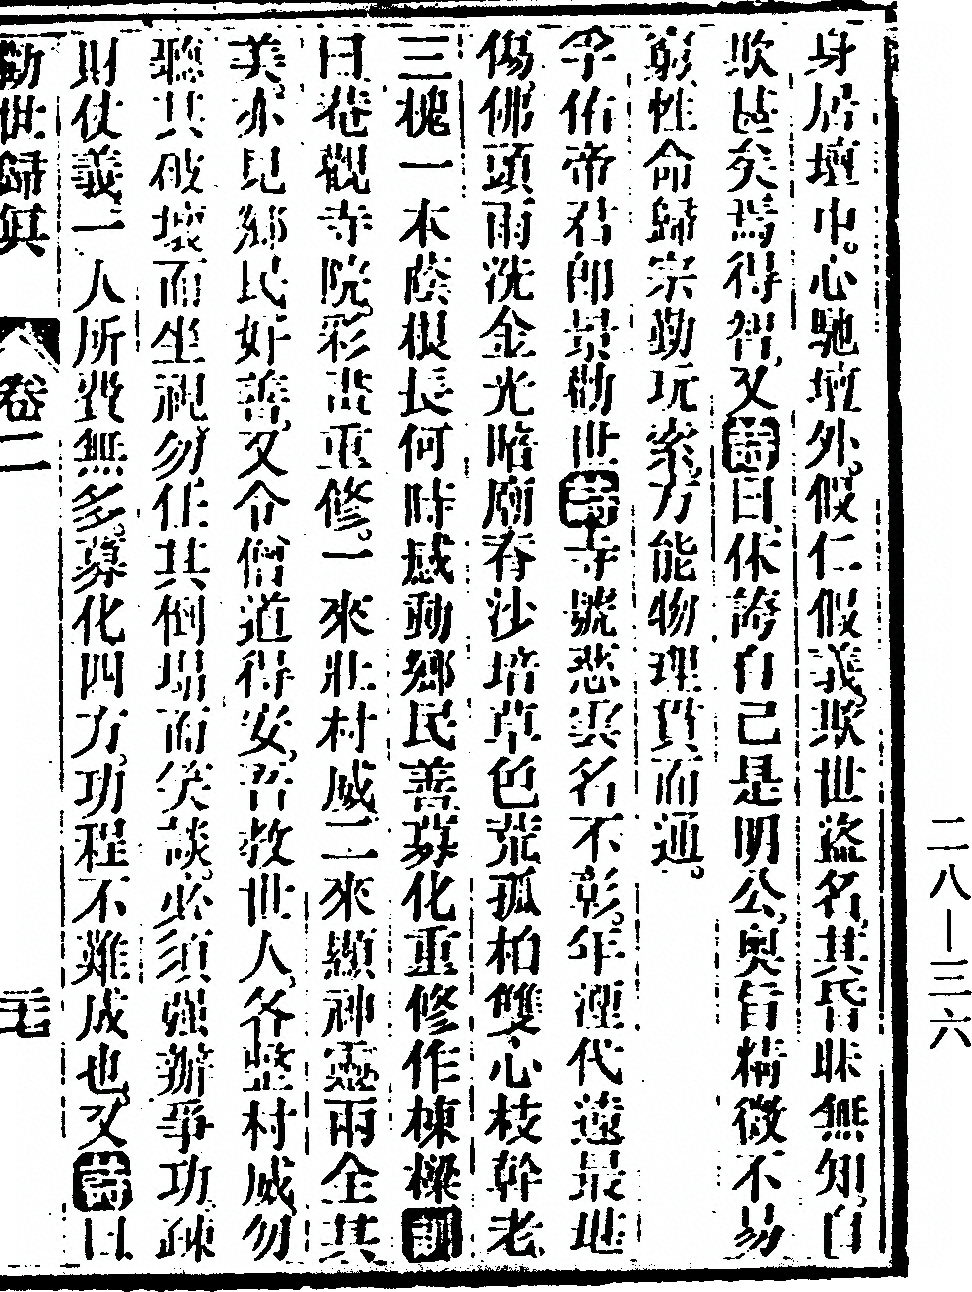 身居壇中。心馳壇外。假仁假義。欺世盜名。其昏昧無知。自
欺甚矣。焉得智。又詩曰。休誇自己是明公。奥旨精微不易
窮。性命歸宗勤玩索。方能物理貫而通。
孚佑帝君郎景勸世詩 寺號慈雲名不彰。年湮代遠最堪
傷。佛頭雨洗金光暗。廟春沙培草色荒。孤柏雙心枝幹老。
三槐一本蔭根長。何時感動鄉民善。募化重修作棟樑。訓
曰。菴觀寺院。彩畫重修。一來壯村威。二來顯神靈。兩全其
美。亦見鄉民好善。又令僧道得安。吾教世人。各整村威。勿
聽其破壞而坐視。勿任其倒塌而笑談。必須强辦爭功。疎
財仗義。一人所費無多。募化四方。功程不難成也。又詩曰
勸世歸眞 卷二 三七
二八—三六